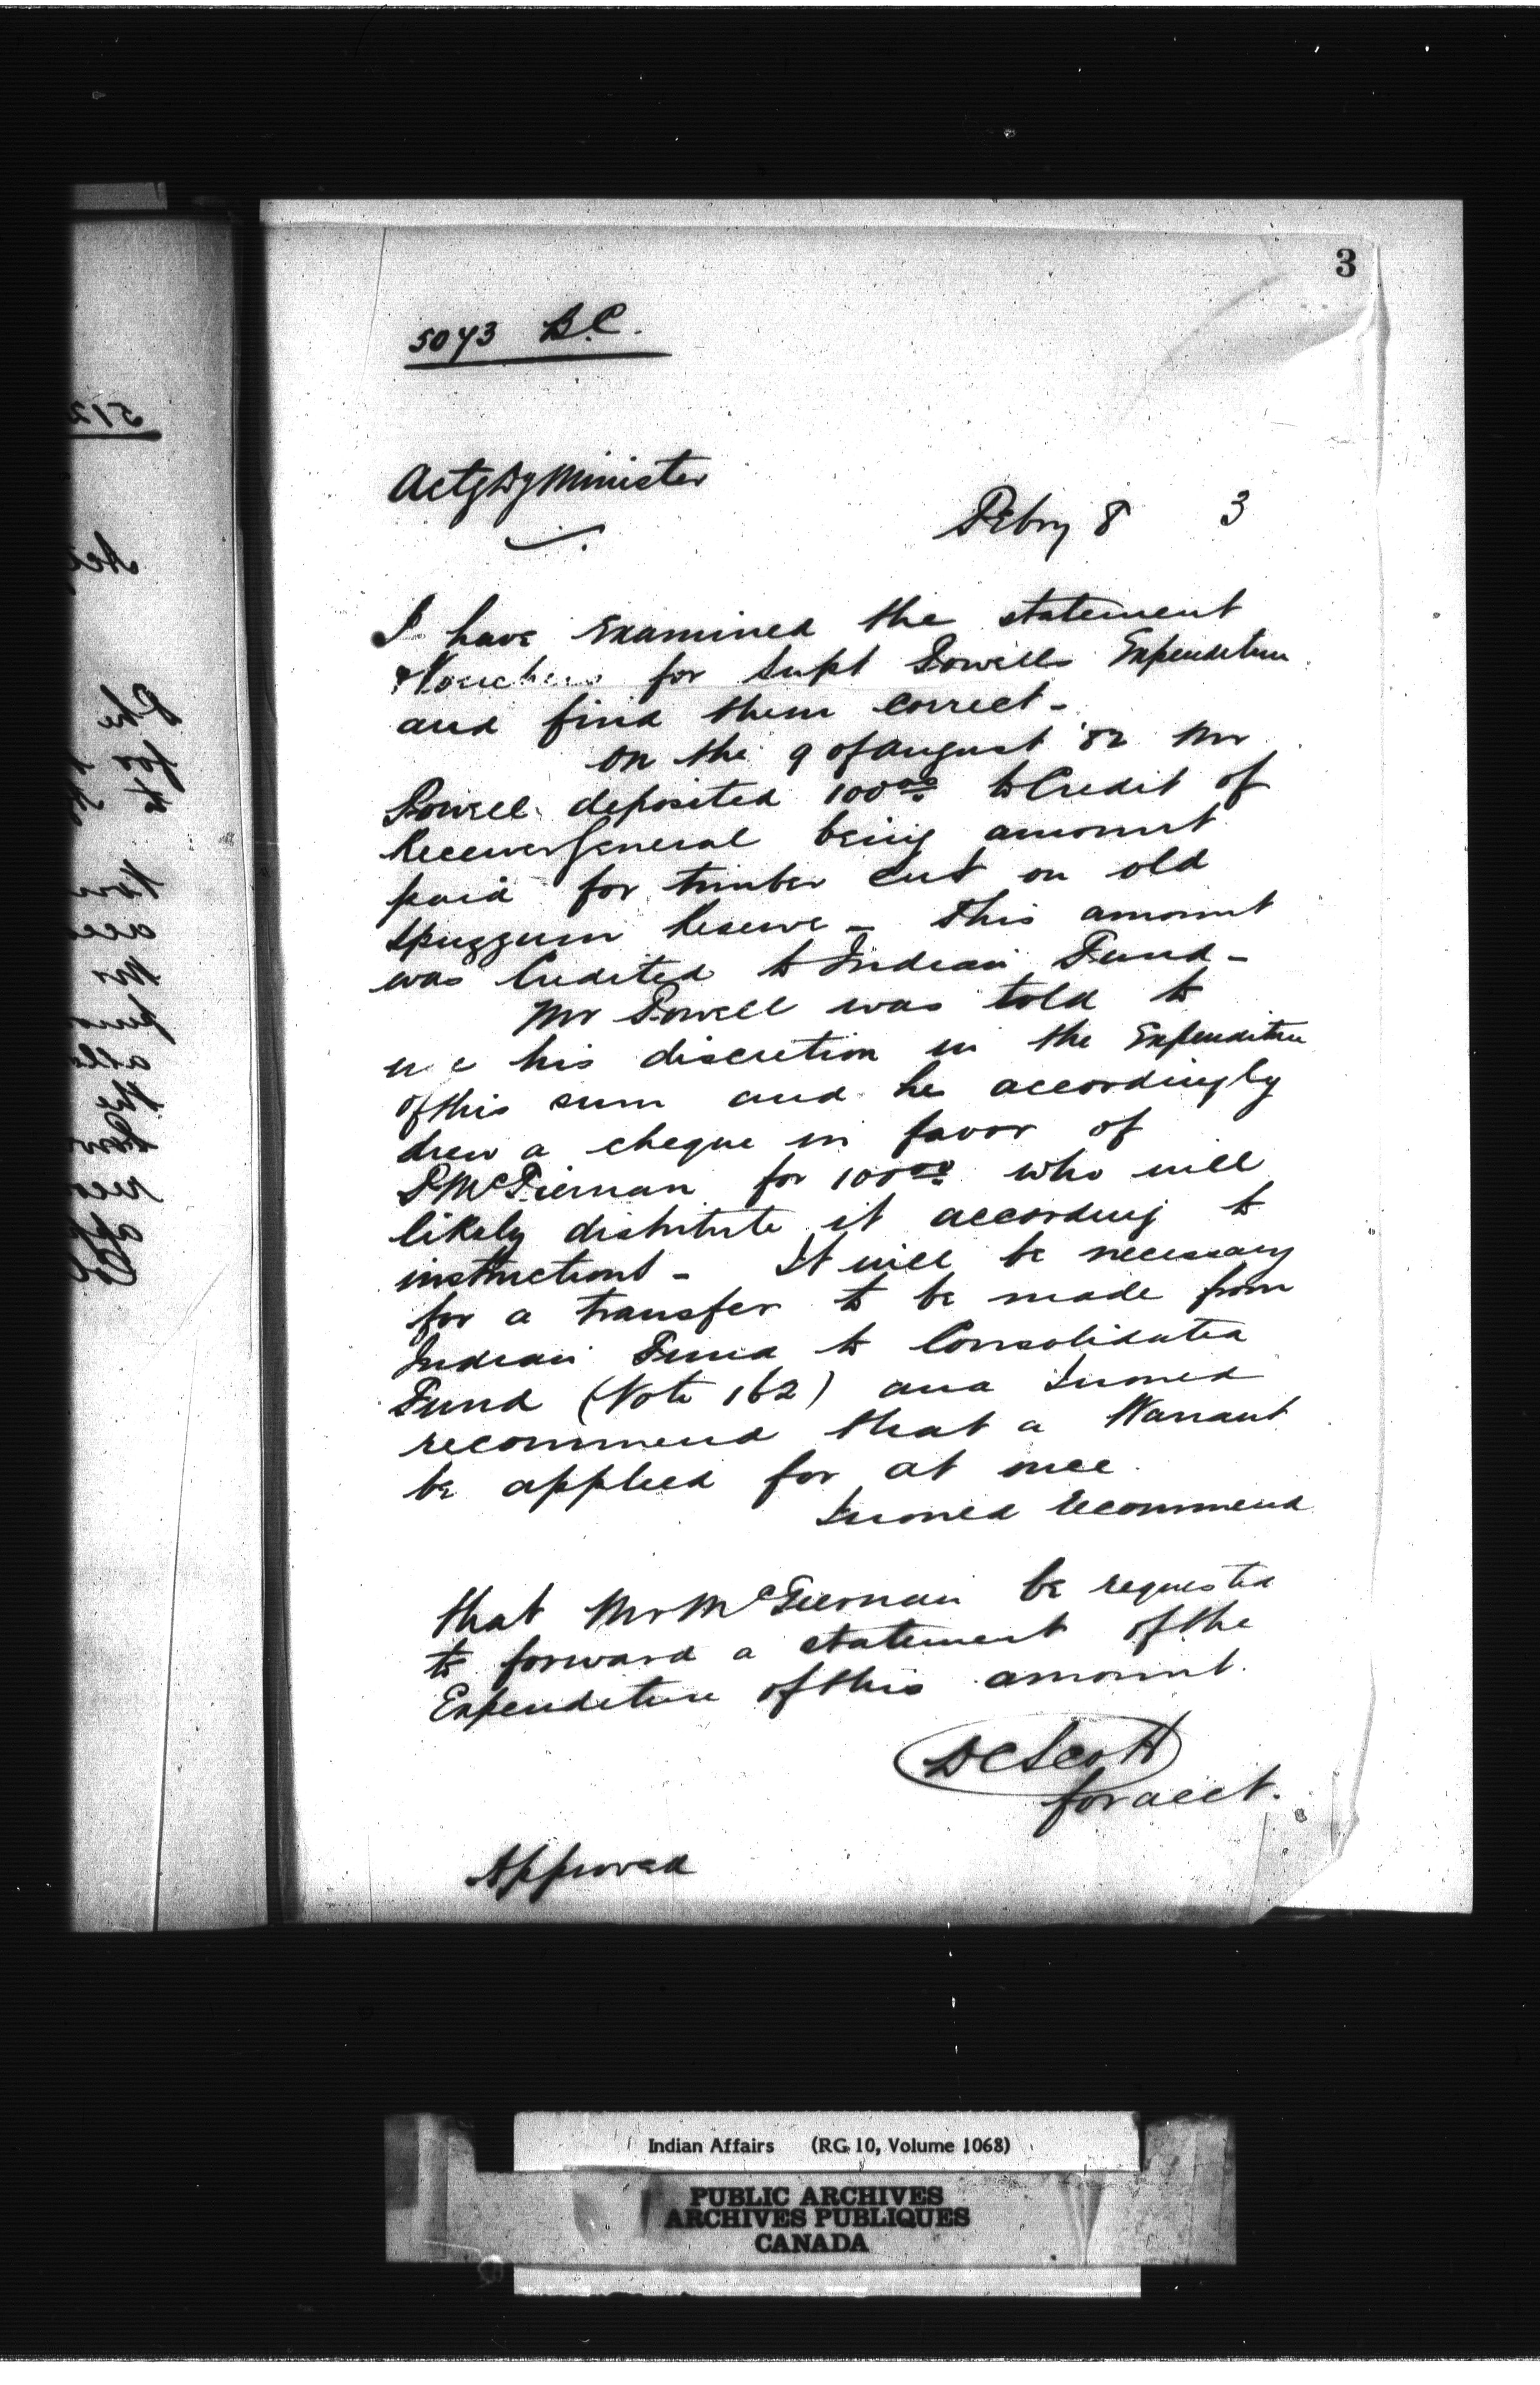 3
5043 B.C.
Actg Dy Minister
Febry 8 3
I have examined the statement
& Vouchers for Supt Powells Expenditure
and find them correct -
On the 9 of August '82 Mr
Powell deposited 100.00 to Credit of
Receiver General being amount
paid for timber cut on old
Spuzzum Reserve - This amount
was Credited to Indian Fund -
Mr Powell was told to
use his discretion in the Expenditure
of this sum and he accordingly
drew a cheque in favor of
P McTiernan for 100.00 who will
likely distribute it according to
instructions - It will be necessary
for a transfer to be made from
Indian Fund to Consolidated
Fund (Vote 162) and I would
recommend that a Warrant
be applied for at once.
I would recommend
that Mr McTiernan be requested
to forward a statement of the
Expenditure of this amount.
D C Scott
for acct.
Approved
Indian Affairs (RG 10, Volume 1068)
PUBLIC ARCHIVES
ARCHIVES PUBLIQUES
CANADA